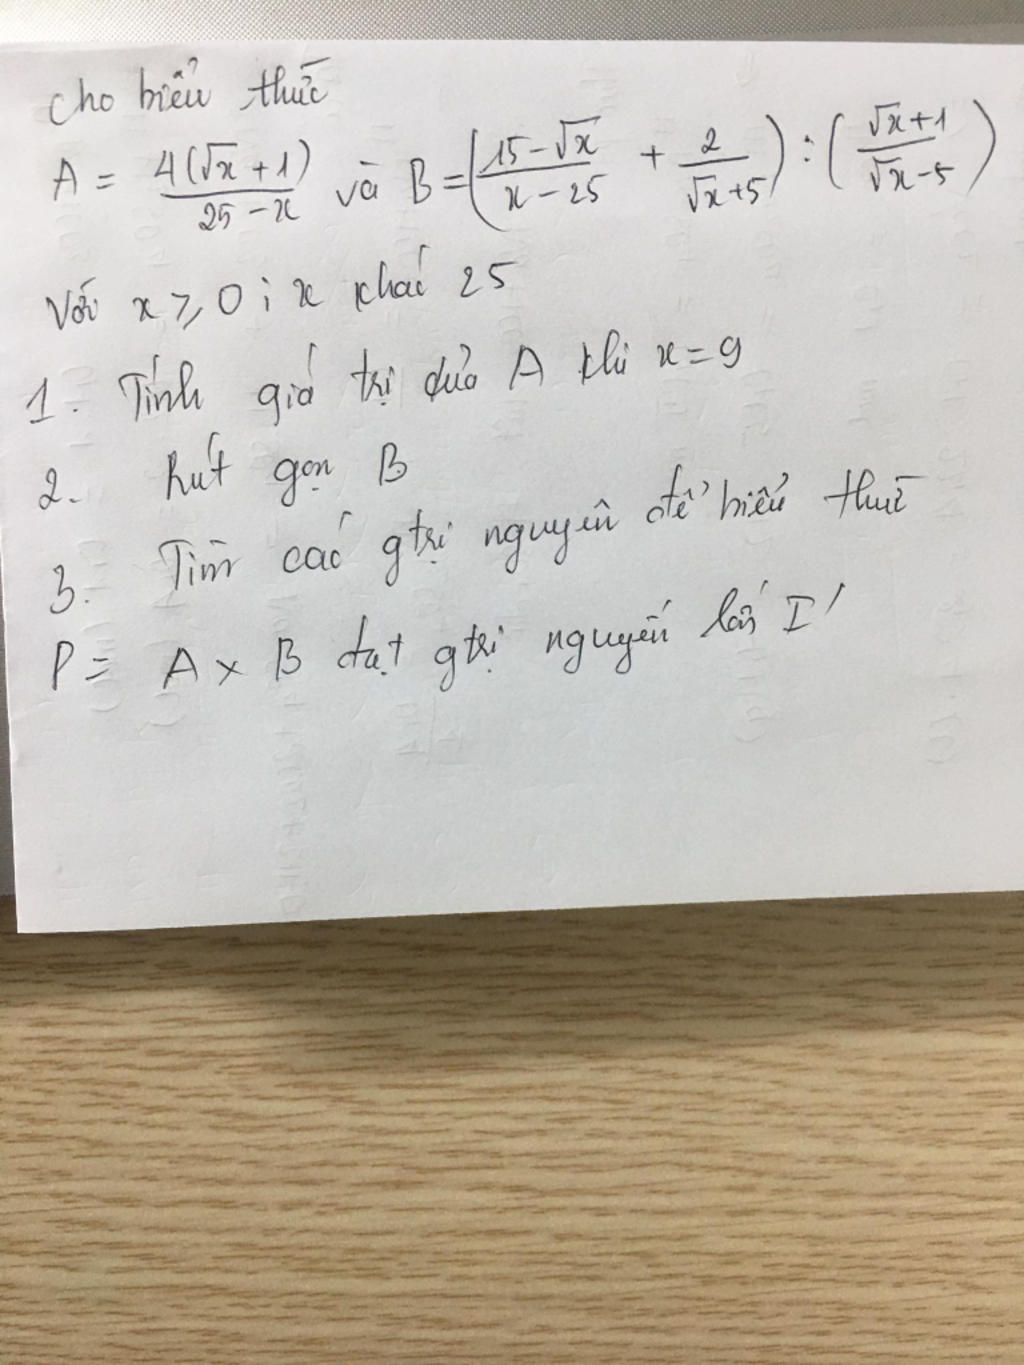 cho biểu thức
A = 4(√x + 1) / 25 - x và B = (15 - √x / x - 25 + 2 / √x + 5) : (√x + 1 / √x - 5)
Với x ≥ 0 ; x khác 25
1. Tính giá trị của A khi x = 9
2. Rút gọn B
3. Tìm các gtrị nguyên để biểu thức
P = A x B đạt gtrị nguyên lớn I'